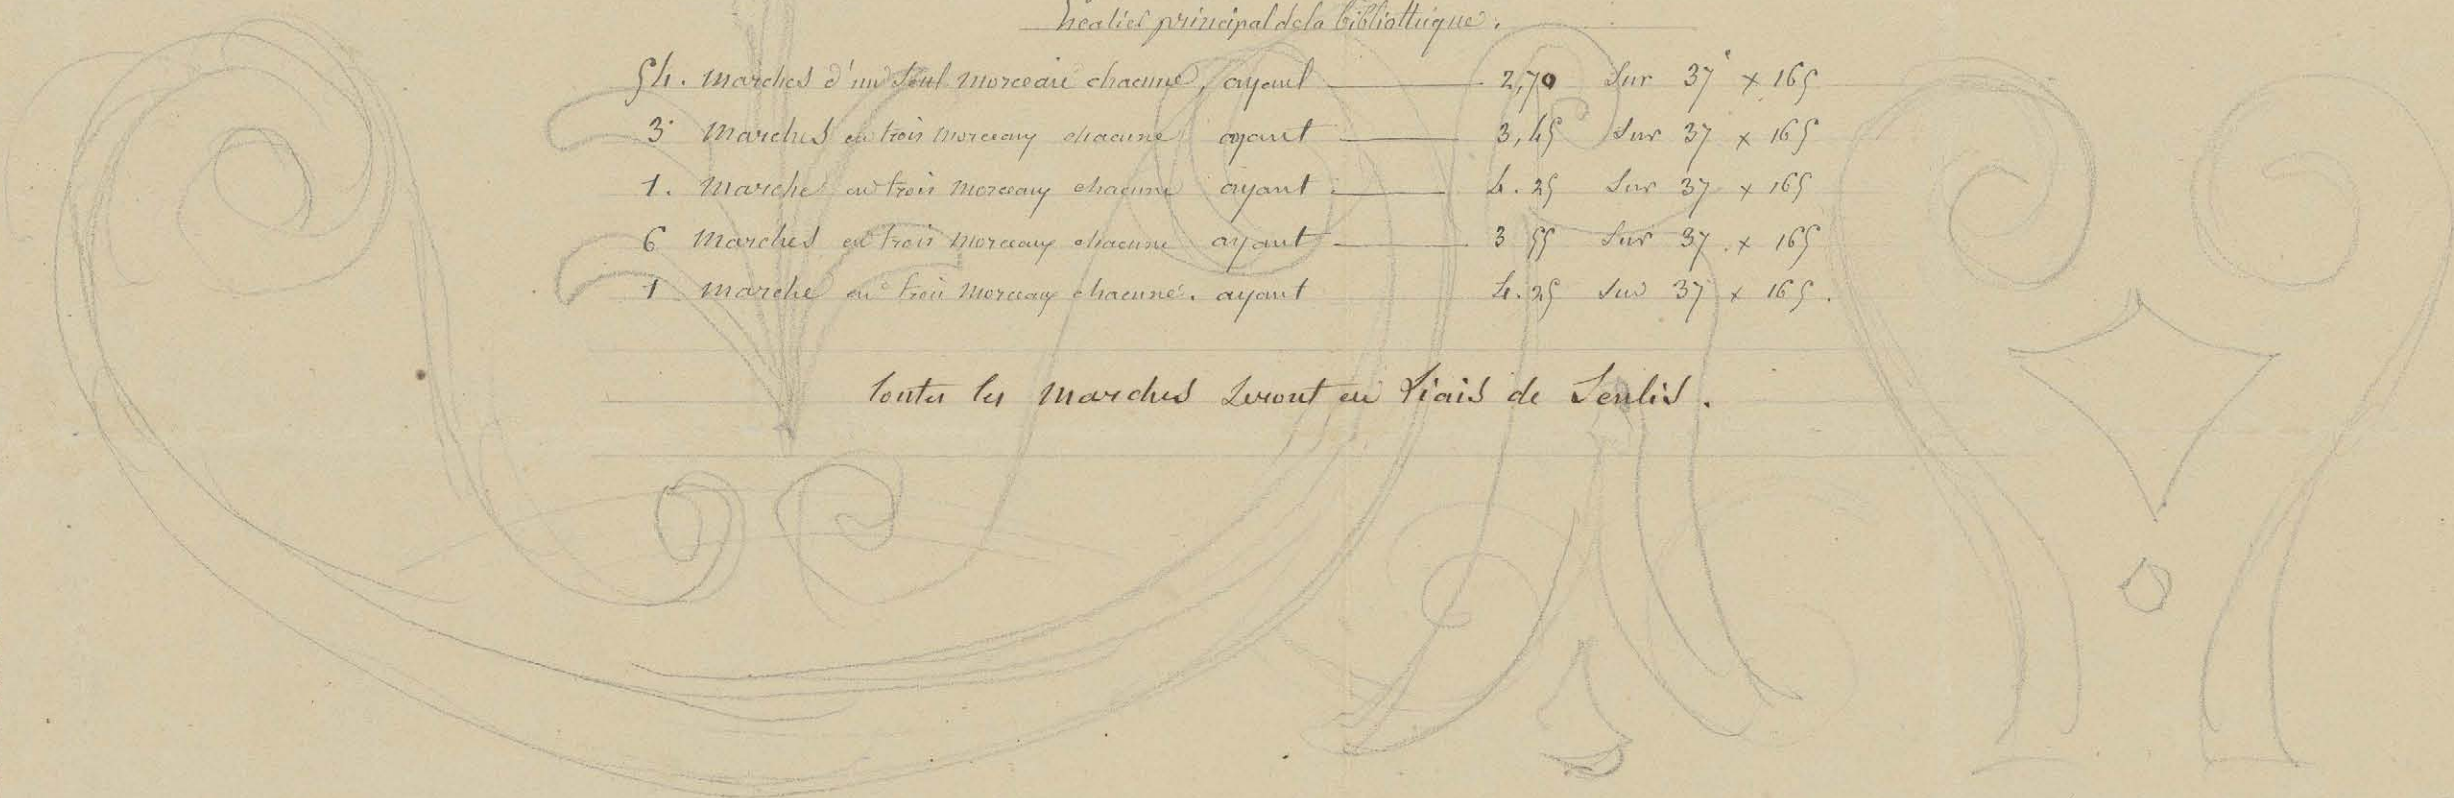 Escalier principal de la bibliothèque.
54. Marches d'un seul morceau chacune, ayant 2,70 sur 37 x 165
3 Marches en trois morceaux chacune ayant 3,45 sur 37 x 165
1. Marche en trois morceaux chacune ayant 4.25 sur 37 x 165
6 Marches en trois morceaux chacune ayant 3 55 sur 37 x 165
1 Marche en trois morceaux chacune. ayant 4.25 sur 37 x 165.
Toutes les marches seront en Liais de Senlis.